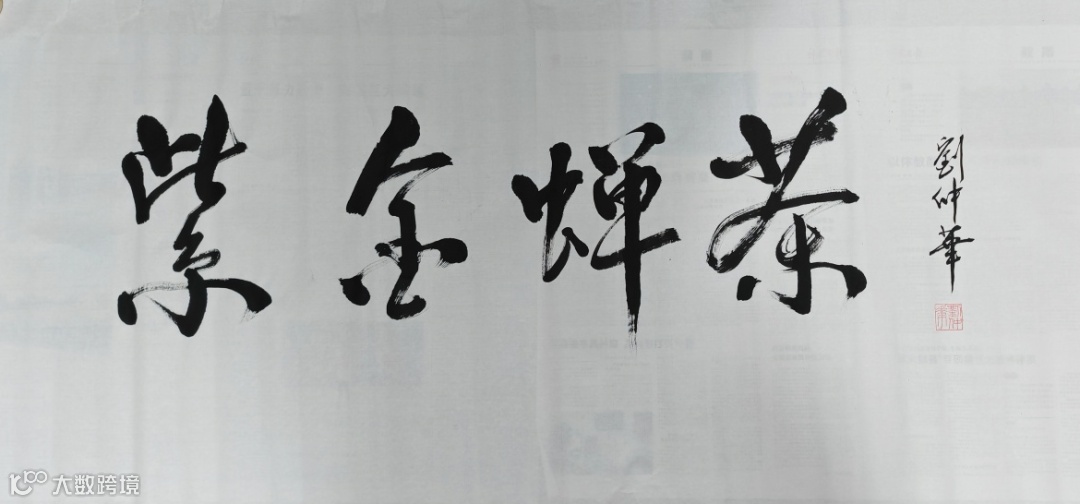 紫金蝉茶
劉仲華
大数跨境